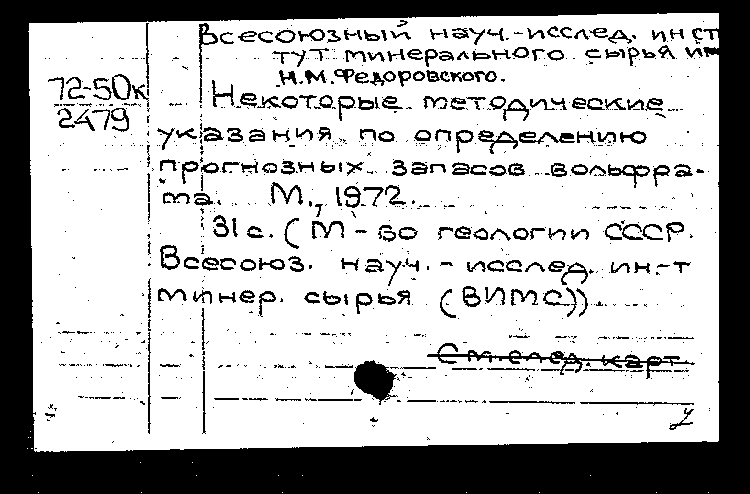 Всесоюзный науч.-исслед. инст
тут минерального сырья им
Н.М.Федоровского.
72-50к
2479
Некоторые методические
указания по определению
прогнозных запасов вольфра-
ма. М., 1972.
31 с. (М-во геологии СССР.
Всесоюз. науч.-исслед. ин-т
минер. сырья (ВИМС)).
См. след. карт.